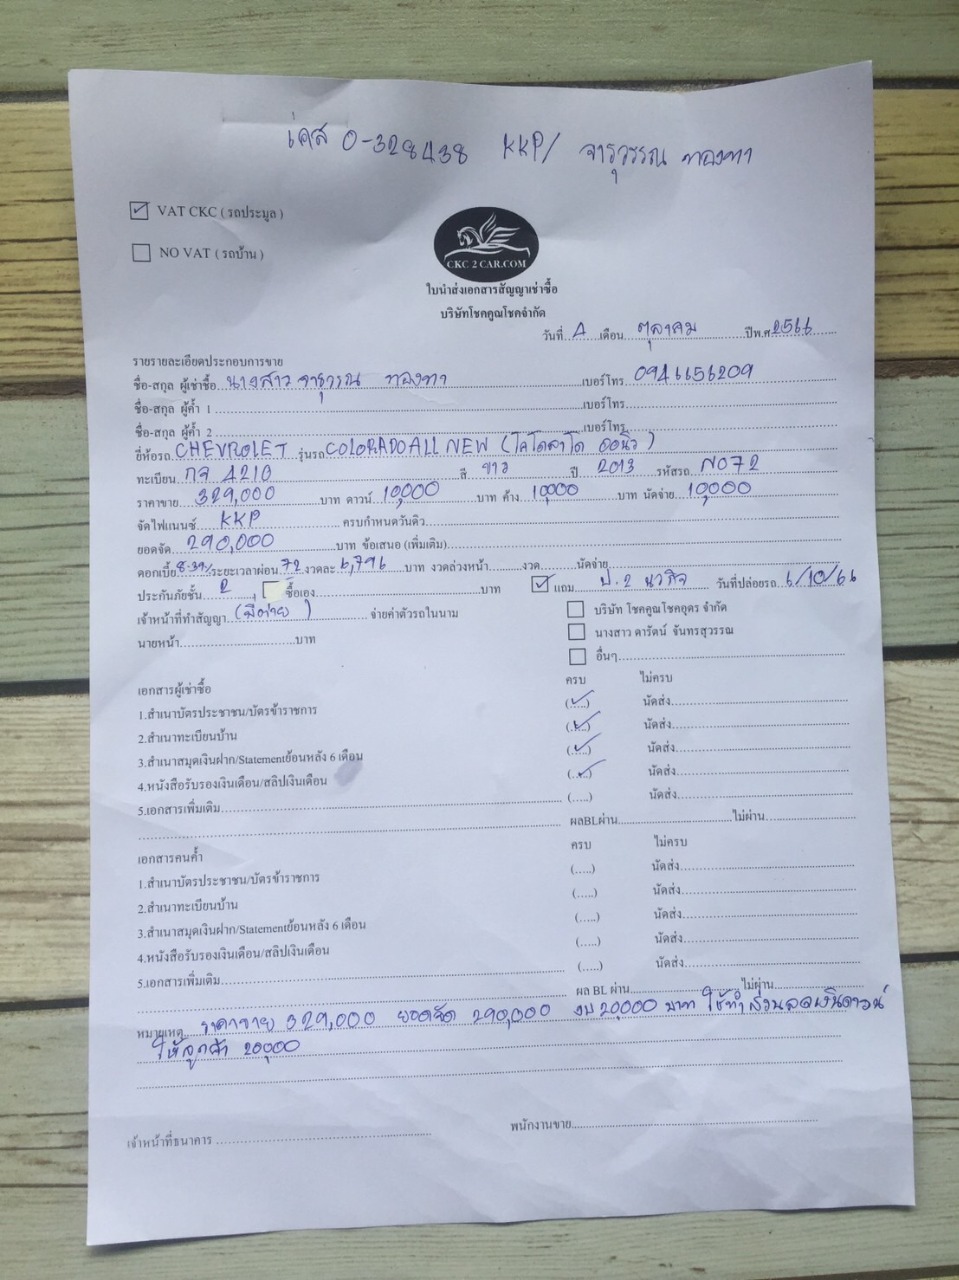 เคส 0-328438 KKP/ จารุวรรณ ทองทา
VAT CKC ( รถประมูล )
NO VAT ( รถบ้าน )
CKC 2 CAR.COM
ใบนำส่งเอกสารสัญญาเช่าซื้อ
บริษัทโชคคูณโชคจำกัด
วันที่ 4 เดือน ตุลาคม ปีพ.ศ 2566
รายรายละเอียดประกอบการขาย
ชื่อ-สกุล ผู้เช่าซื้อ นางสาว จารุวรรณ ทองทา เบอร์โทร 0946656209
ชื่อ-สกุล ผู้ค้ำ 1 เบอร์โทร
ชื่อ-สกุล ผู้ค้ำ 2 เบอร์โทร
ยี่ห้อรถ CHEVROLET รุ่นรถ COLORADO ALL NEW (โคโลลาโด ออนิว)
ทะเบียน กจ 4210 สี ขาว ปี 2013 รหัสรถ N072
ราคาขาย 329,000 บาท ดาวน์ 10,000 บาท ค้าง 10,000 บาท นัดจ่าย 10,000
จัดไฟแนนซ์ KKP ครบกำหนดวันดิว
ยอดจัด 290,000 บาท ข้อเสนอ (เพิ่มเติม)
ดอกเบี้ย ระยะเวลาผ่อน 72 งวดละ 6,796 บาท งวดล่วงหน้า งวด นัดจ่าย
ประกันภัยชั้น 2 , ซื้อเอง บาท แถม ป.2 นวกิจ วันที่ปล่อยรถ 6/10/66
เจ้าหน้าที่ทำสัญญา จ่ายค่าตัวรถในนาม บริษัท โชคคูณโชคอุดร จำกัด
นายหน้า บาท นางสาว ดารัตน์ จันทรสุวรรณ
อื่นๆ
เอกสารผู้เช่าซื้อ ครบ ไม่ครบ
1.สำเนาบัตรประชาชน/บัตรข้าราชการ นัดส่ง
2.สำเนาทะเบียนบ้าน นัดส่ง
3.สำเนาสมุดเงินฝาก/Statementย้อนหลัง 6 เดือน นัดส่ง
4.หนังสือรับรองเงินเดือน/สลิปเงินเดือน นัดส่ง
5.เอกสารเพิ่มเติม (.....) นัดส่ง
ผลBLผ่าน ไม่ผ่าน
เอกสารคนค้ำ ครบ ไม่ครบ
1.สำเนาบัตรประชาชน/บัตรข้าราชการ (.....) นัดส่ง
2.สำเนาทะเบียนบ้าน (.....) นัดส่ง
3.สำเนาสมุดเงินฝาก/Statementย้อนหลัง 6 เดือน (.....) นัดส่ง
4.หนังสือรับรองเงินเดือน/สลิปเงินเดือน (.....) นัดส่ง
5.เอกสารเพิ่มเติม (.....) นัดส่ง
ผล BL ผ่าน ไม่ผ่าน
หมายเหตุ ราคาขาย 329,000 ยอดจัด 290,000 งบ 20,000 บาท ใช้ทำส่วนลดเงินดาวน์
ให้ลูกค้า 20,000
เจ้าหน้าที่ธนาคาร พนักงานขาย